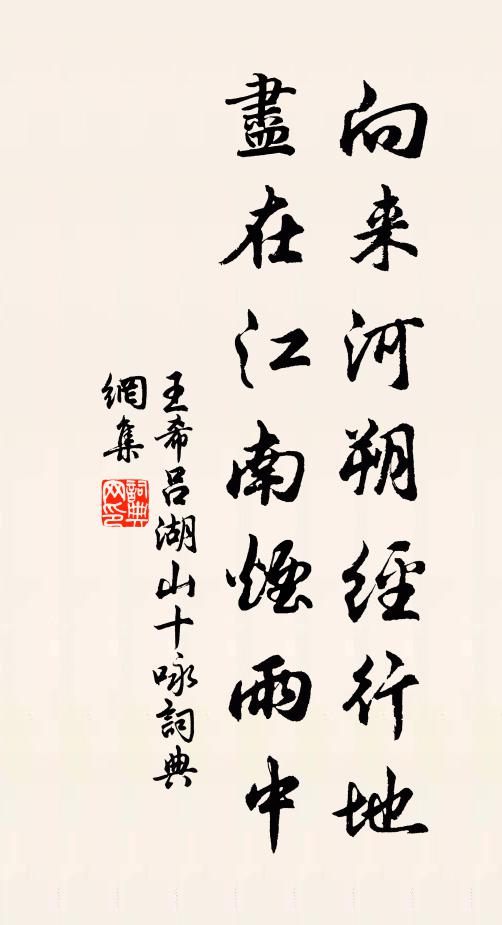 向来河朔經行地
盡在江南煙雨中
王希呂湖山十咏詞典
網集
詞典
网印